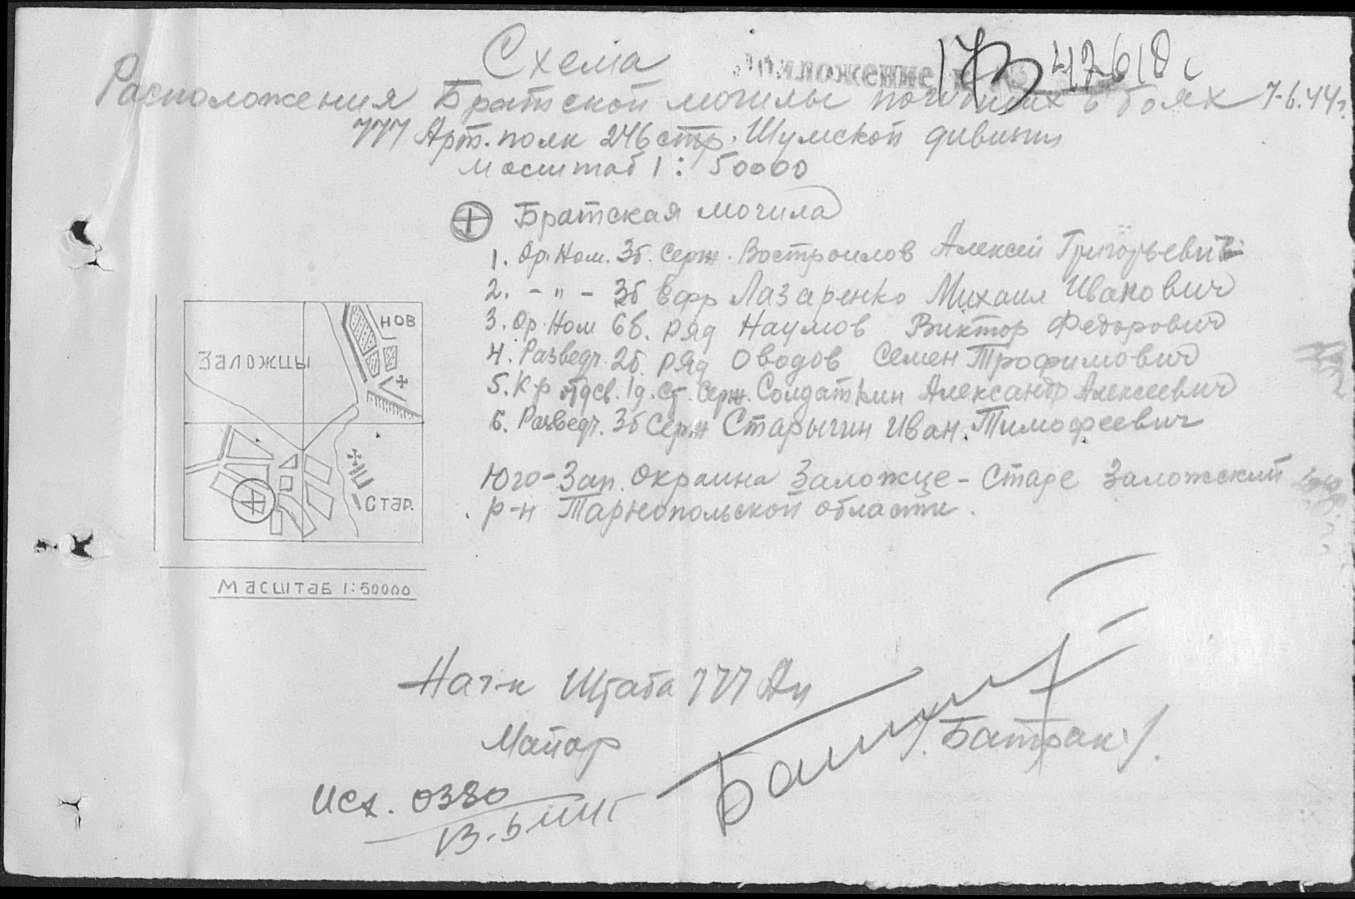 Схема
Приложение 173 47618с
Расположения Братской могилы погибших в боях 7.6.44г.
777 Арт. полк 246 стр. Шумской дивизии
Масштаб 1:50000
Братская могила
1. Ор. Ном. 3б. Серж. Востроилов Алексей Григорьевич
2. - " - 3б Ефр Лазаренко Михаил Иванович
3. Ор. Ном 6б. ряд Наумов Виктор Федорович
4. Разведч. 2б. ряд Оводов Семен Трофимович
5. Кр 1д. Ст. Серж. Солдаткин Александр Алексеевич
6. Разведч. 3б Серж Старыгин Иван Тимофеевич
Юго-Зап. окраина Заложце-Старе Заложский
р-н Тарнопольской области.
НОВ
Заложцы
Стар.
Масштаб 1:50000
Нач-к Штаба 777 Ап
Майор
/Батрак/.
исх. 0380
13.6.44г